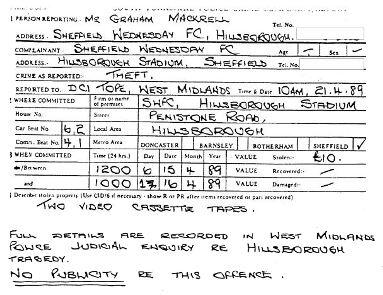 1 PERSON REPORTING - MR GRAHAM MACKRELL Tel. No.
ADDRESS - SHEFFIELD WEDNESDAY FC, HILLSBOROUGH.
COMPLAINANT SHEFFIELD WEDNESDAY FC Age - Sex -
ADDRESS - HILLSBOROUGH STADIUM, SHEFFIELD Tel. No.
CRIME AS REPORTED: THEFT.
REPORTED TO: DCI TOPE, WEST MIDLANDS Time & Date 10AM, 21.4.89
2 WHERE COMMITTED Firm or name of premises SWFC, HILLSBOROUGH STADIUM
House No. Street PENISTONE ROAD,
Car Beat No 6,2 Local Area HILLSBOROUGH
Comm. Beat No. 4,1 Metro Area DONCASTER BARNSLEY ROTHERHAM SHEFFIELD ✓
3 WHEN COMMITTED Time (24 hrs.) Day Date Month Year VALUE Stolen:- £10.
At/Between 1200 6 15 4 89 VALUE Recovered:- -
and 1000 16 4 89 VALUE Damaged:- -
TWO VIDEO CASSETTE TAPES.
FULL DETAILS ARE RECORDED IN WEST MIDLANDS
POLICE JUDICIAL ENQUIRY RE HILLSBOROUGH
TRAGEDY.
NO PUBLICITY RE THIS OFFENCE.